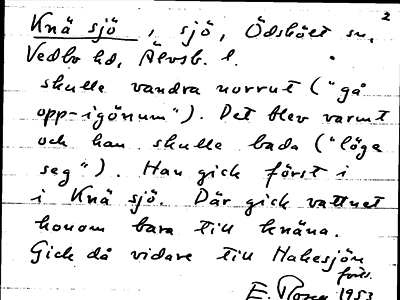 2
Knä sjö, sjö, Ödsbölt sn.
Vedbo hd, Älvsb. l.
skulle vandra norrut ("gå
opp-igönum"). Det blev varmt
och han skulle bada ("löga
seg"). Han gick först i
i Knä sjö. Där gick vattnet
honom bara till knäna.
Gick då vidare till Hakesjön
forts.
E. Rosen 1953